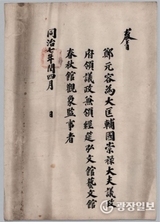 敎旨
鄭元容爲大匡輔國崇祿大夫議政
府領議政兼領經筵弘文館藝文館
春秋館觀象監事者
同治七年閏四月 日
강장신문